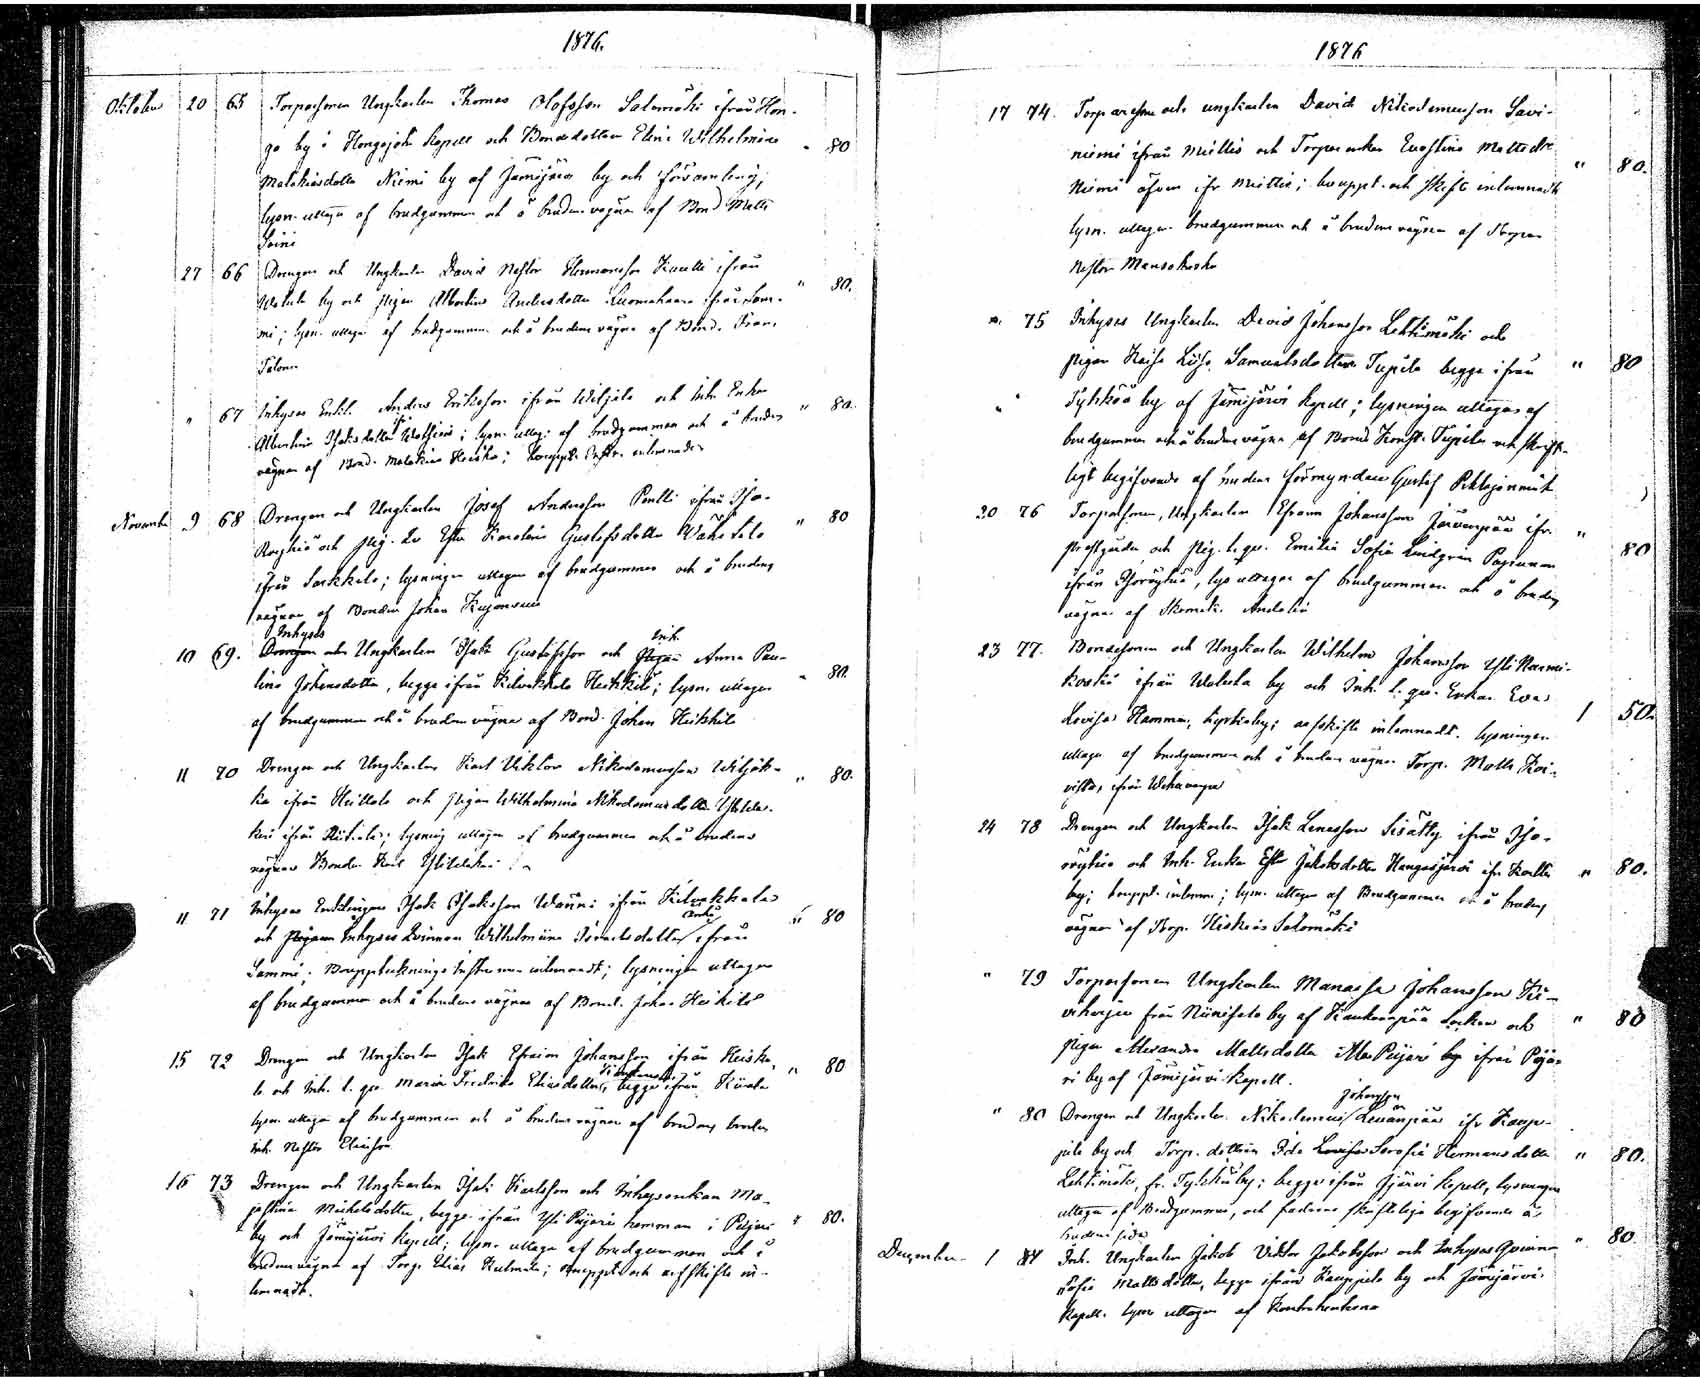 1876.
Oktober 20 65 Torparsonen Ungkarlen Thomas Olofsson Salomäki ifrån Hon-
go by i Hongojoki Kapell och Bondedottren Elina Wilhelmina " 80
Malakiasdotter Niemi by af Jämijärvi by och församling;
lysn. uttagen af brudgummen och å brudens vägnar af Bond. Matts
Soini
27 66 Drengen och Ungkarlen David Nestor Hermansson ifrån
by och Pigan Albertina Andersdotter Luomahaara ifrån Sam-
mi; lysn. uttagen af brudgummen och å brudens vägnar af Bond. Frans " 80.
Talonen
" 67 Inhyses Enkl. Anders Eriksson ifrån Wiljala och Inh. Enkan
Albertina Isaksdotter; lysn. uttag. af brudgummen och å brudens " 80.
vägnar af Bond. Malakias Heiska; Bouppt. Instr. inlemnades
November 9 68 Drengen och Ungkarlen Josef Andersson Pentti ifrån Iso-
Röyhiö och Pig. Karolina Gustafsdotter Wähätalo " 80
ifrån Sarkkila; lysningen uttagen af brudgummen och å brudens
vägnar af Bonden Johan
Inhyses Inh.
10 69. Drengen och Ungkarlen Isak Gustafsson och Pigan Anna Pau-
lina Johansdotter, begge ifrån Kilvakkala Heikkilä; lysn. uttagen " 80.
af brudgummen och å brudens vägnar af Bond. Johan Heikkilä
11 70 Drengen och Ungkarlen Karl Viktor Nikodemusson
ka ifrån Heittola och Pigan Wilhelmina Nikodemusdotter " 80.
ifrån; lysning uttagen af brudgummen och å brudens
vägnar Bonden Karl
11 71 Inhyses Enklingen Isak Isaksson ifrån Kilvakkala
och Pigan Inhyses Qvinnan Wilhelmina Israelsdotter ifrån " 80
Sammi; Bouppteckningsinstrumen inlemnadt; lysningen uttagen
af brudgummen och å brudens vägnar af Bond. Johan Heikkilä
15 72 Drengen och Ungkarlen Isak Efraim Johansson ifrån Heiska-
la och Inh. l. qv. Maria Fredrika Eliasdotter, begge ifrån " 80
lysn. uttagen af brudgummen och å brudens vägnar af brudens broder
Inh. Nestor Eliasson
16 73 Drengen och Ungkarlen Isak Karlsson och Inhysenkan Ma-
jastina Mickelsdotter, begge ifrån Yli Peijari hemman i Peijari " 80.
by och Jämijärvi Kapell; lysn. uttagen af brudgummen och å
brudens vägnar af Torp. Elias; bouppt. och arfskifte in-
lemnadt.
1876
17 74. Torparesonen och ungkarlen David Nikodemusson Savi-
niemi ifrån Miettis och Torpareenkan Eufstina Mattsdr " 80.
Niemi äfven ifr. Miettis; bouppt. och skifte inlemnadt
lysn. uttagen brudgummen och å brudens vägnar af Torparen
Nestor Mansokoski
" 75 Inhyses Ungkarlen David Johansson Lehtimäki och
pigan Kaisa Lisa Samuelsdotter Tupila begge ifrån " 80
Tykköö by af Jämijärvi Kapell; lysningen uttagen af
brudgummen och å brudens vägnar af Bond. Konst. Tupila och skrift-
ligt begifvande af brudens förmyndare Gustaf
20 76 Torparsonen, Ungkarlen Efraim Johansson Järvenpää ifr.
prestgården och Pig. l. qv. Emilia Sofia Lindgren " 80
ifrån Isoröyhiö, lys. uttagen af brudgummen och å brudens
vägnar af Skomak. Andelin
23 77. Bondesonen och Ungkarlen Wilhelm Johansson
koski ifrån by och Inh. l. qv. Enkan Eva
Lovisa Hamma, Kyrkoby; arfskifte inlemnadt. lysningen 1 50.
uttagen af brudgummen och å brudens vägnar Torp. Matts Koi-
visto, ifrån
24 78 Drengen och Ungkarlen Isak Enersson Sisättö ifrån Iso-
röyhiö och Inh. Enkan Jakobsdotter Kangasjärvi ifr. " 80.
by; bouppt. inlemn.; lysn. uttagen af Brudgummen och å brudens
vägnar af Torp. Hiskias Salomäki
" 79 Torparsonen Ungkarlen Manasse Johansson Ki-
viharju från Niinisalo by af Kankaanpää Socken och " 80
pigan Alexandra Mattsdotter Ala Peijari by ifrån Peija-
ri by af Jämijärvi Kapell.
Johansson
" 80 Drengen och Ungkarlen Nikodemus Leuänpää ifr. Kaup-
pila by och Torp. dottren Ida Lovisa Serafia Hermansdotter " 80.
Lehtimäki, fr. Tykköö by; begge ifrån Jjärvi Kapell, lysningen
uttagen af Brudgummen, och fadrens skriftliga begifvande å
brudens sida
December 1 81 Inh. Ungkarlen Jakob Viktor Jakobsson och Inhyses Qvinna " 80
Sofia Mattsdotter, begge ifrån Kauppila by och Jämijärvi
Kapell. lysn. uttagen af Kontrahenterna